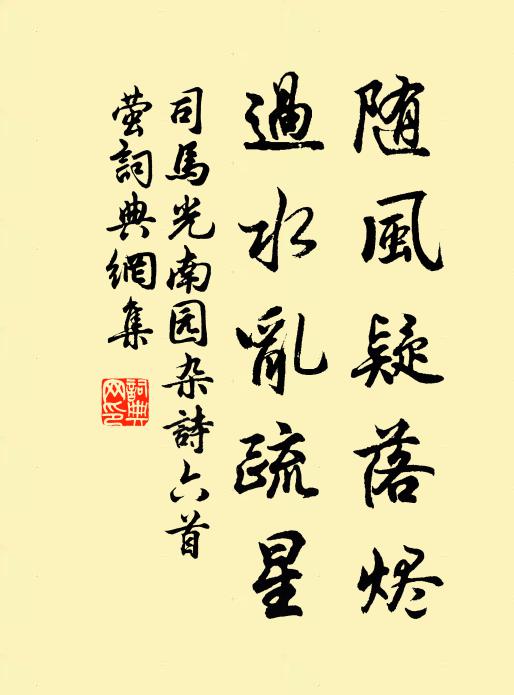 随風疑落烬
過水亂疏星
司馬光南园杂詩六首
萤詞典網集
詞典
网印